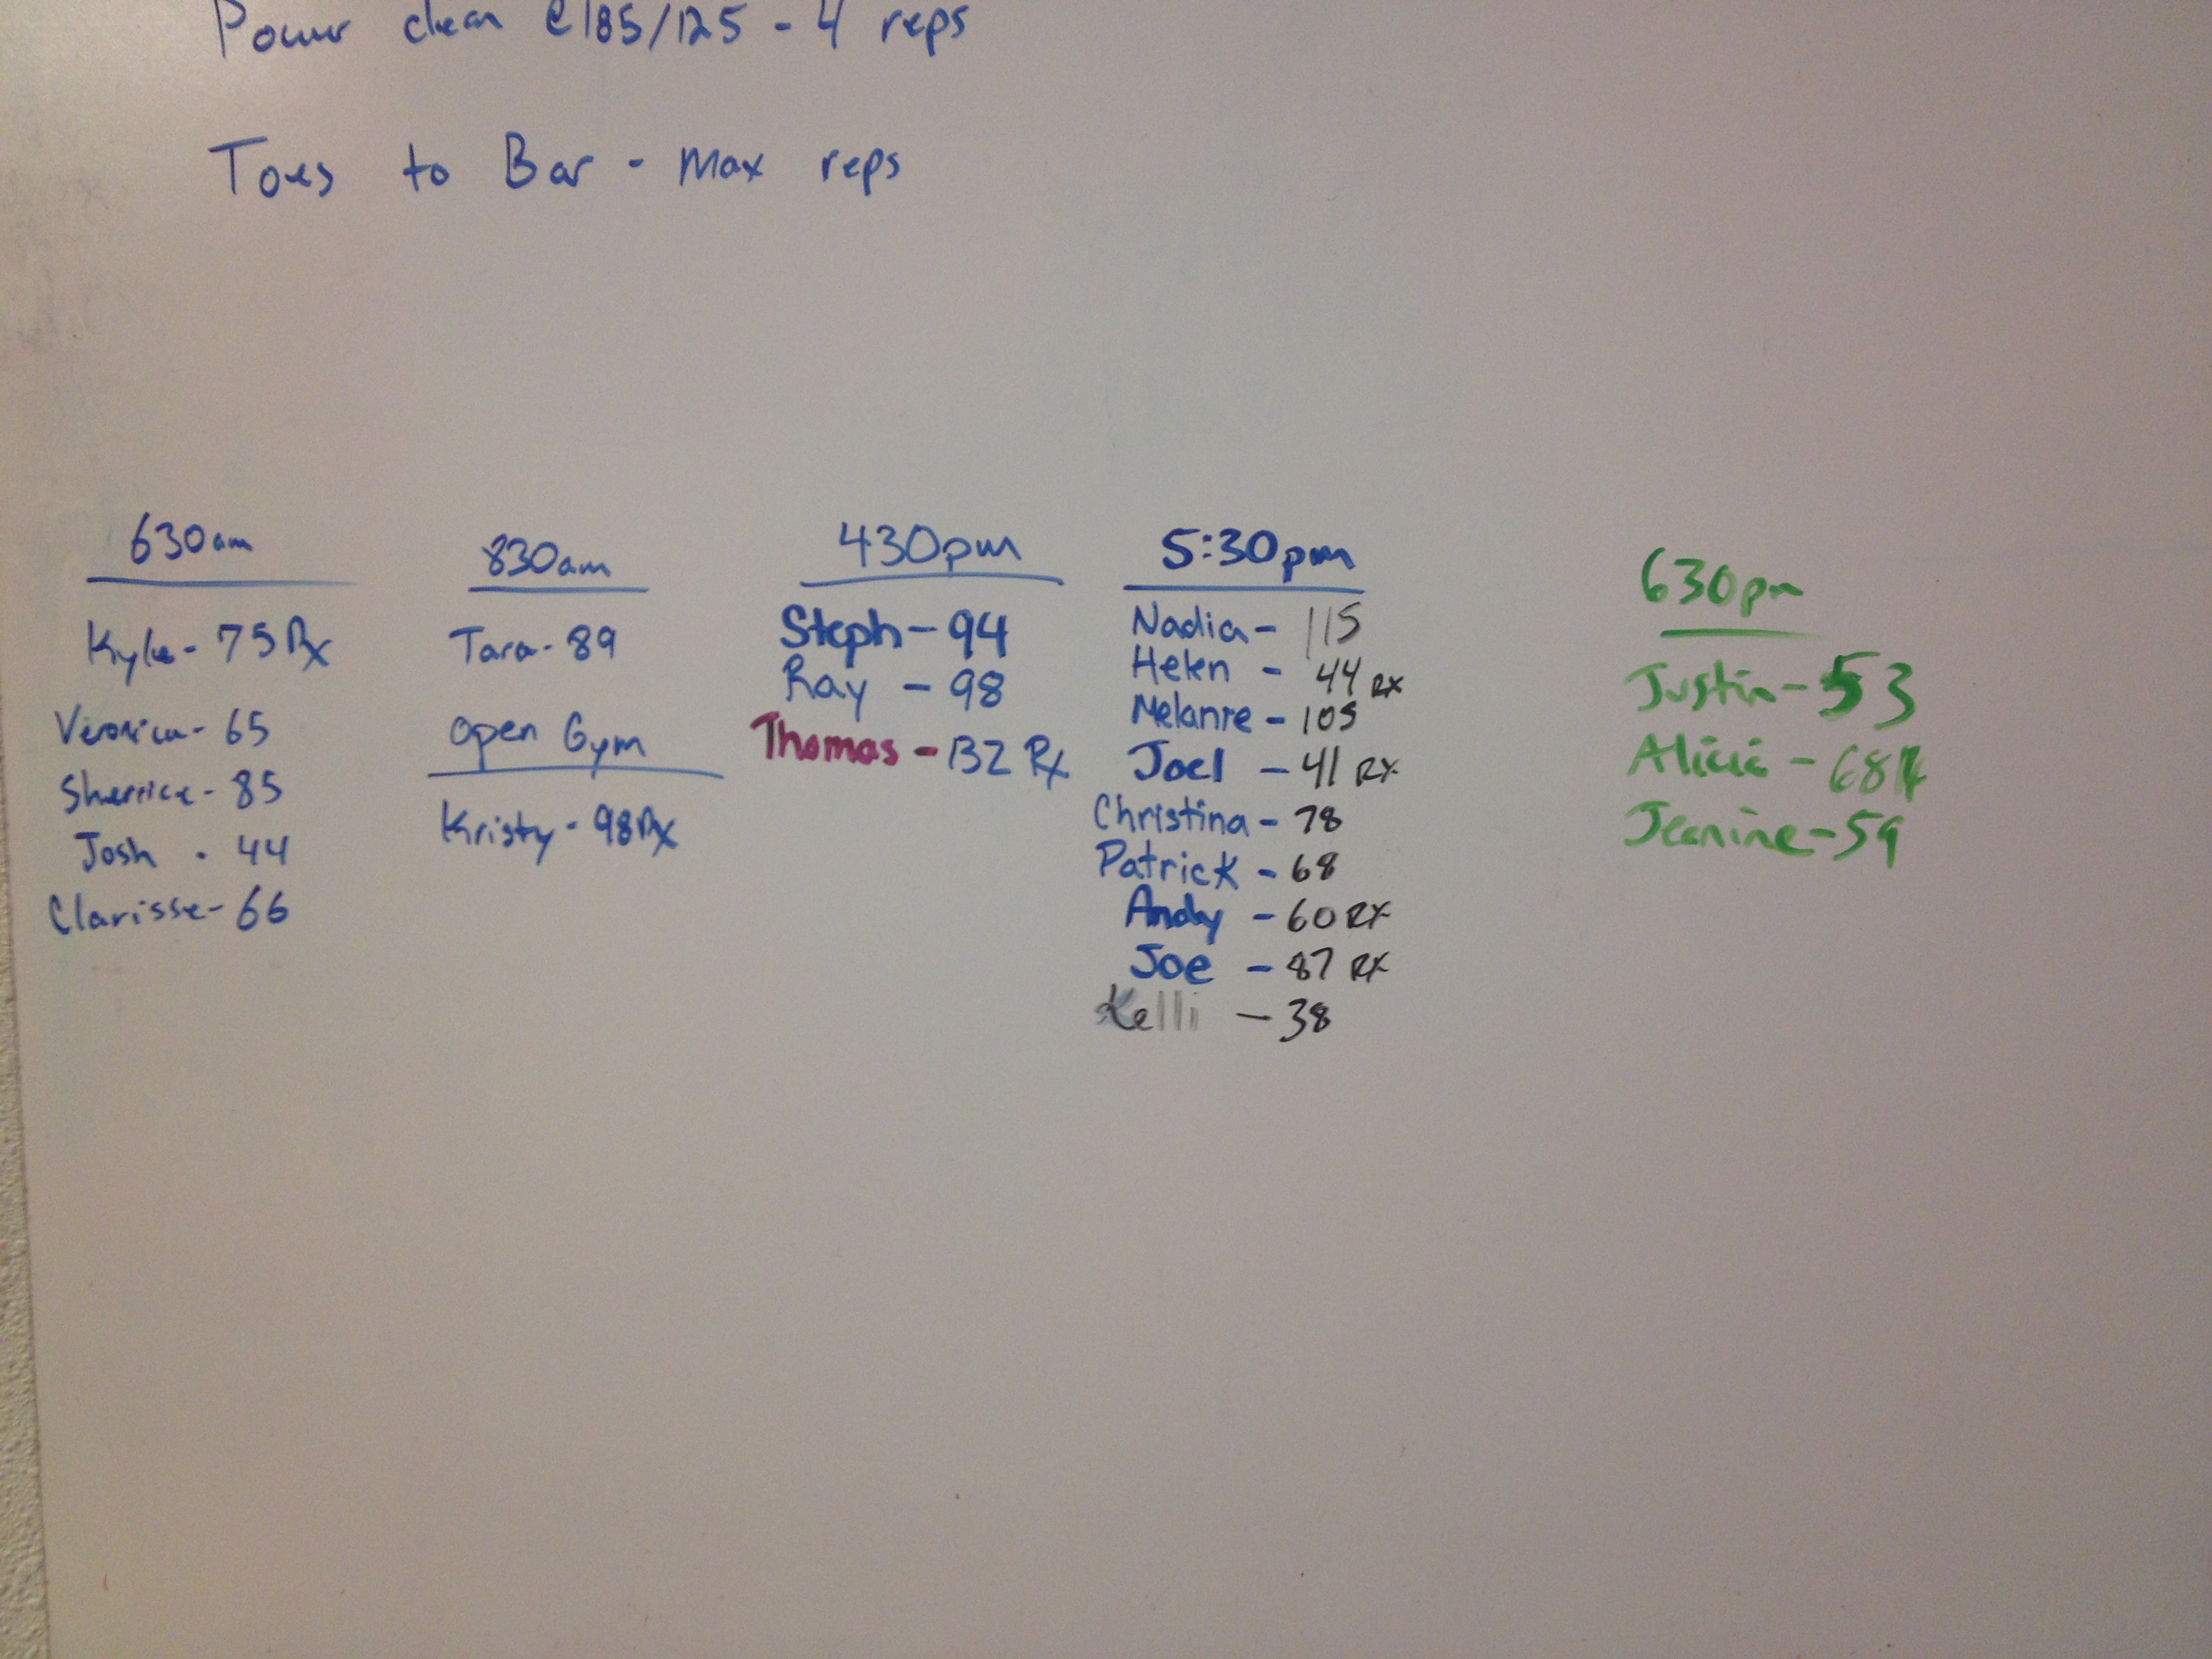 Power clean @ 185/125 - 4 reps
Toes to Bar - Max reps
630am
Kyle - 75 Rx
Veronica - 65
Sherrice - 85
Josh - 44
Clarisse - 66
830am
Tara - 89
Open Gym
Kristy - 98 Rx
430pm
Steph - 94
Ray - 98
Thomas - 132 Rx
5:30pm
Nadia - 115
Helen - 44 RX
Melanie - 105
Joel - 41 RX
Christina - 78
Patrick - 68
Andy - 60 RX
Joe - 87 RX
Kelli - 38
630pm
Justin - 53
Alicia - 68
Jeanine - 59